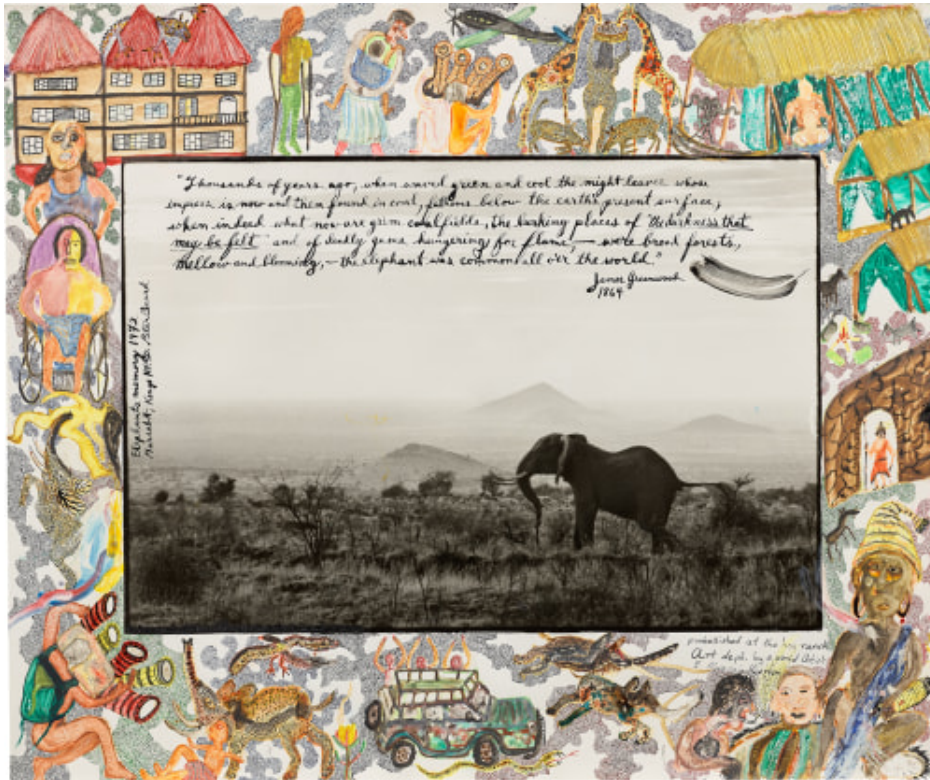 "Thousands of years ago, when waved green and cool the might leaves whose
impress is now and then found in coal, fathoms below the earth's present surface,
when indeed what now are grim coalfields, the lurking places of "the darkness that
may be felt" and of deadly gems hungering for flame, — were broad forests,
mellow and blooming, — the elephant was common all o'er the world."
James Greenwood
1864
Elephants memory 1972
Peter Beard
at the hog ranch
Art dept. by